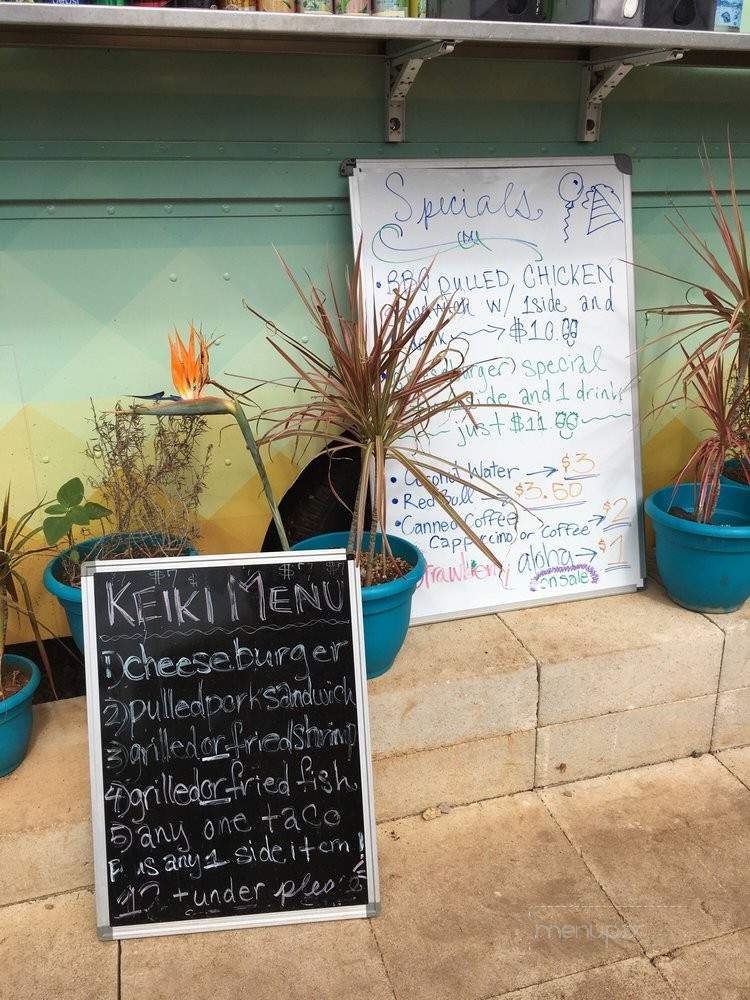 Specials
• BBQ PULLED CHICKEN
w/ 1 side and
$10.00
special
side, and 1 drink
just $11.00
• Coconut Water → $3
• Red Bull → $3.50
• Canned Coffee → $2
Cappuccino or Coffee
Strawberry aloha → $1
on sale
$7 $7
KEIKI MENU
1) cheeseburger
2) pulled pork sandwich
3) grilled or fried shrimp
4) grilled or fried fish
5) any one taco
any 1 side item
12 + under
menupix